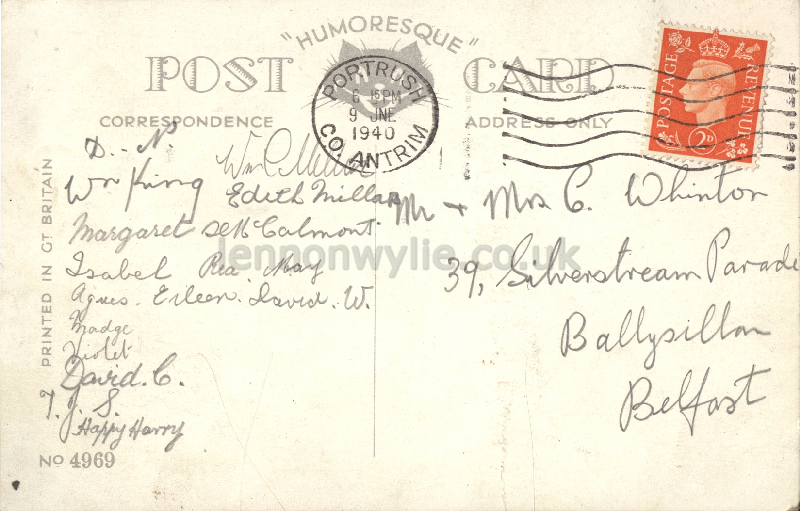 "HUMORESQUE"
POST CARD
CORRESPONDENCE
ADDRESS ONLY
PORTRUSH
6 15PM
9 JNE
1940
CO. ANTRIM
POSTAGE
REVENUE
2D
PRINTED IN GT BRITAIN
D. - N.
Wm King
Edith Millar
Margaret McCalmont.
Isabel Rea. May
Agnes. Eileen. David. W.
Madge
Violet
David. C.
T. J. S.
Happy Harry
No 4969
Mr + Mrs C. Whinton
39, Silverstream Parade
Ballysillan
Belfast
lennonwylie.co.uk